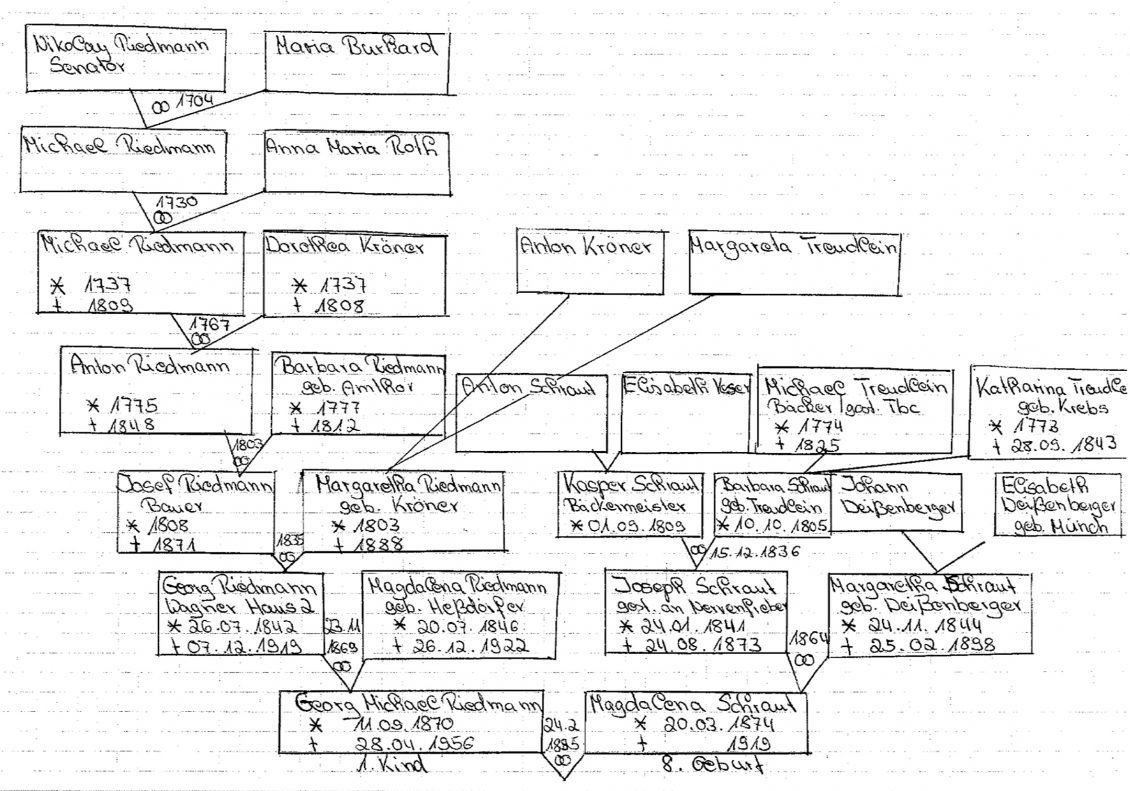 Nikolay Riedmann
Senator
Maria Burkard
∞ 1704
Michael Riedmann
Anna Maria Roth
1730
∞
Michael Riedmann
* 1737
† 1809
Dorothea Kröner
* 1737
† 1808
Anton Kröner
Margareta Treudlein
1767
∞
Anton Riedmann
* 1775
† 1848
Barbara Riedmann
geb. Amthor
* 1777
† 1812
Anton Schraut
Elisabeth
Michael Treudlein
Bäcker gest. Tbc
* 1774
† 1825
Katharina Treudle
geb. Krebs
* 1773
† 28.09.1843
1803
∞
Josef Riedmann
Bauer
* 1808
† 1871
Margaretha Riedmann
geb. Kröner
* 1803
† 1888
Kaspar Schraut
Bäckermeister
* 01.09.1809
Barbara Schraut
geb. Treudlein
* 10.10.1805
Johann
Deißenberger
Elisabeth
Deißenberger
geb. Münch
1835
∞
∞ 15.12.1836
Georg Riedmann
Wagner Haus 2
* 26.07.1842
† 07.12.1919
Magdalena Riedmann
geb. Heßdörfer
* 20.07.1846
† 26.12.1922
Joseph Schraut
gest. an Nervenfieber
* 24.01.1841
† 24.08.1873
Margaretha Schraut
geb. Deißenberger
* 24.11.1844
† 25.02.1898
23.11
1869
∞
1864
∞
Georg Michael Riedmann
* 11.09.1870
† 28.04.1956
1. Kind
Magdalena Schraut
* 20.03.1874
† 1919
8. Geburt
24.2
1895
∞